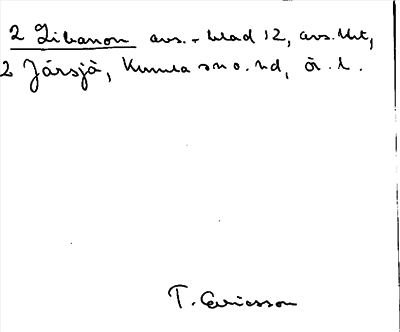 2 Libanon avs. - blad 12, avs. Utt,
2 Järsjö, Kumla sn o. hd, Ör. l.
T. Ericsson